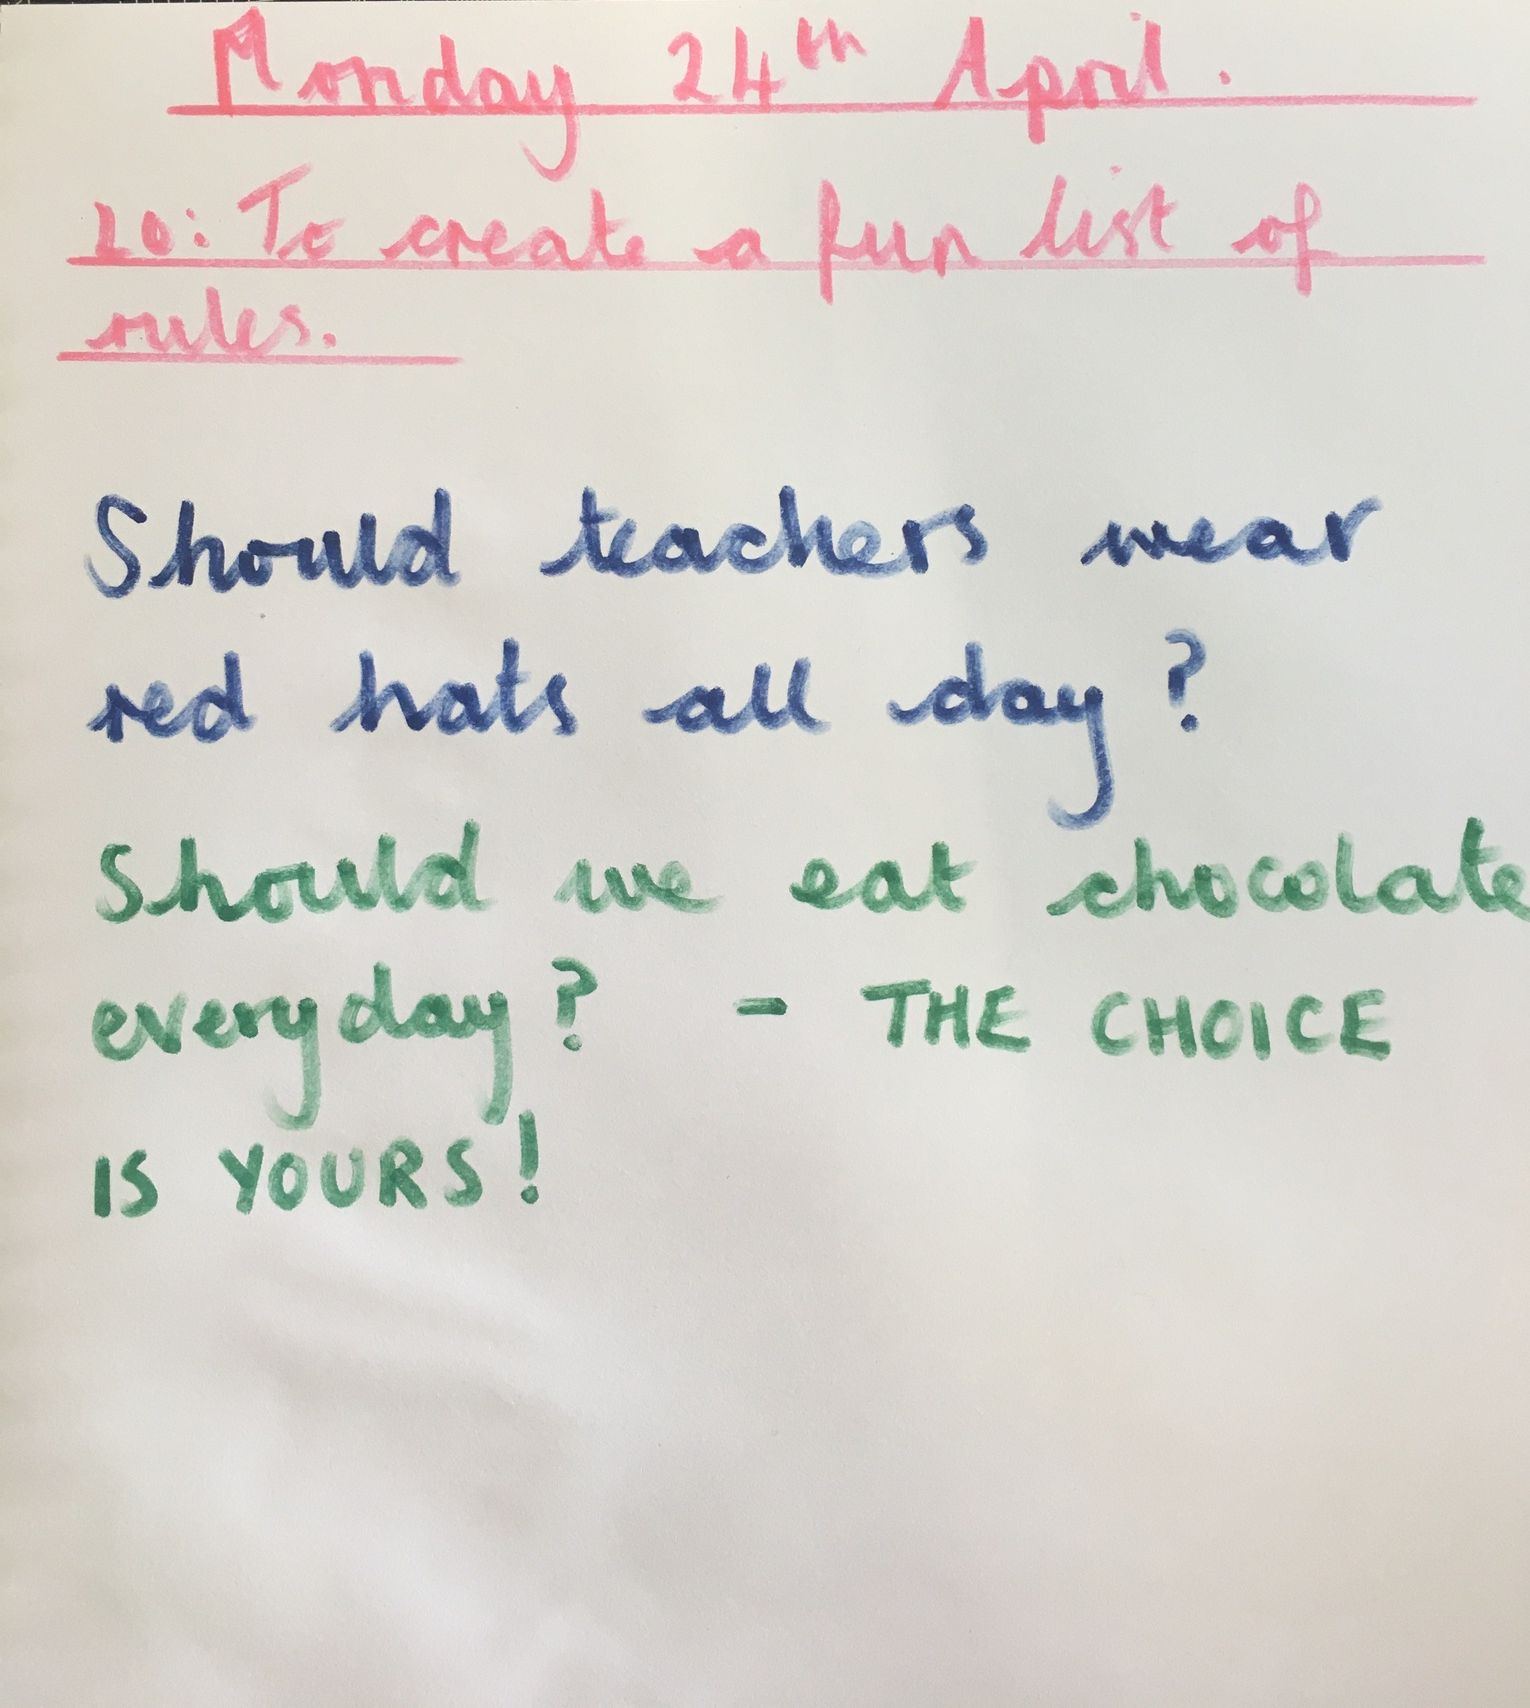 Monday 24th April.
LO: To create a fun list of
rules.
Should teachers wear
red hats all day?
Should we eat chocolate
everyday? - THE CHOICE
IS YOURS!